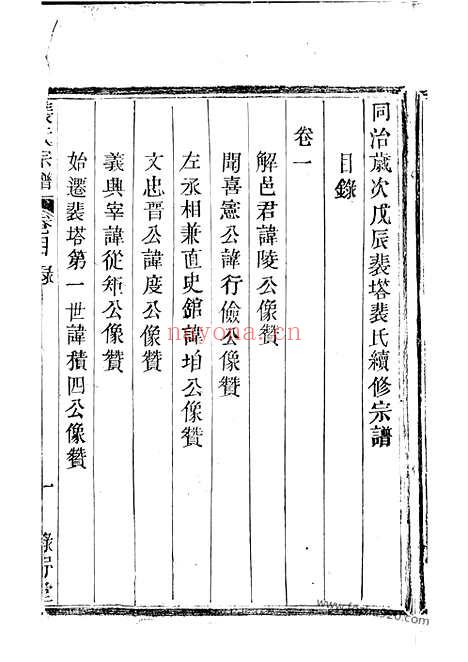 同治歲次戊辰裴塔裴氏續修宗譜
目錄
卷一
解邑君諱陵公像贊
聞喜憲公諱行儉公像贊
左丞相兼直史館諱垍公像贊
文忠晉公諱度公像贊
義興宰諱從矩公像贊
始遷裴塔第一世諱積四公像贊
裴氏宗譜 卷目錄 一
nayona.cn